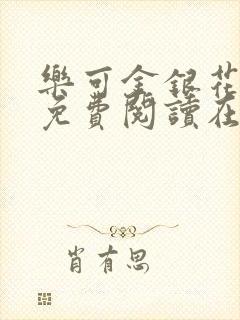 樂可金銀花
免費閱讀在
肖有思